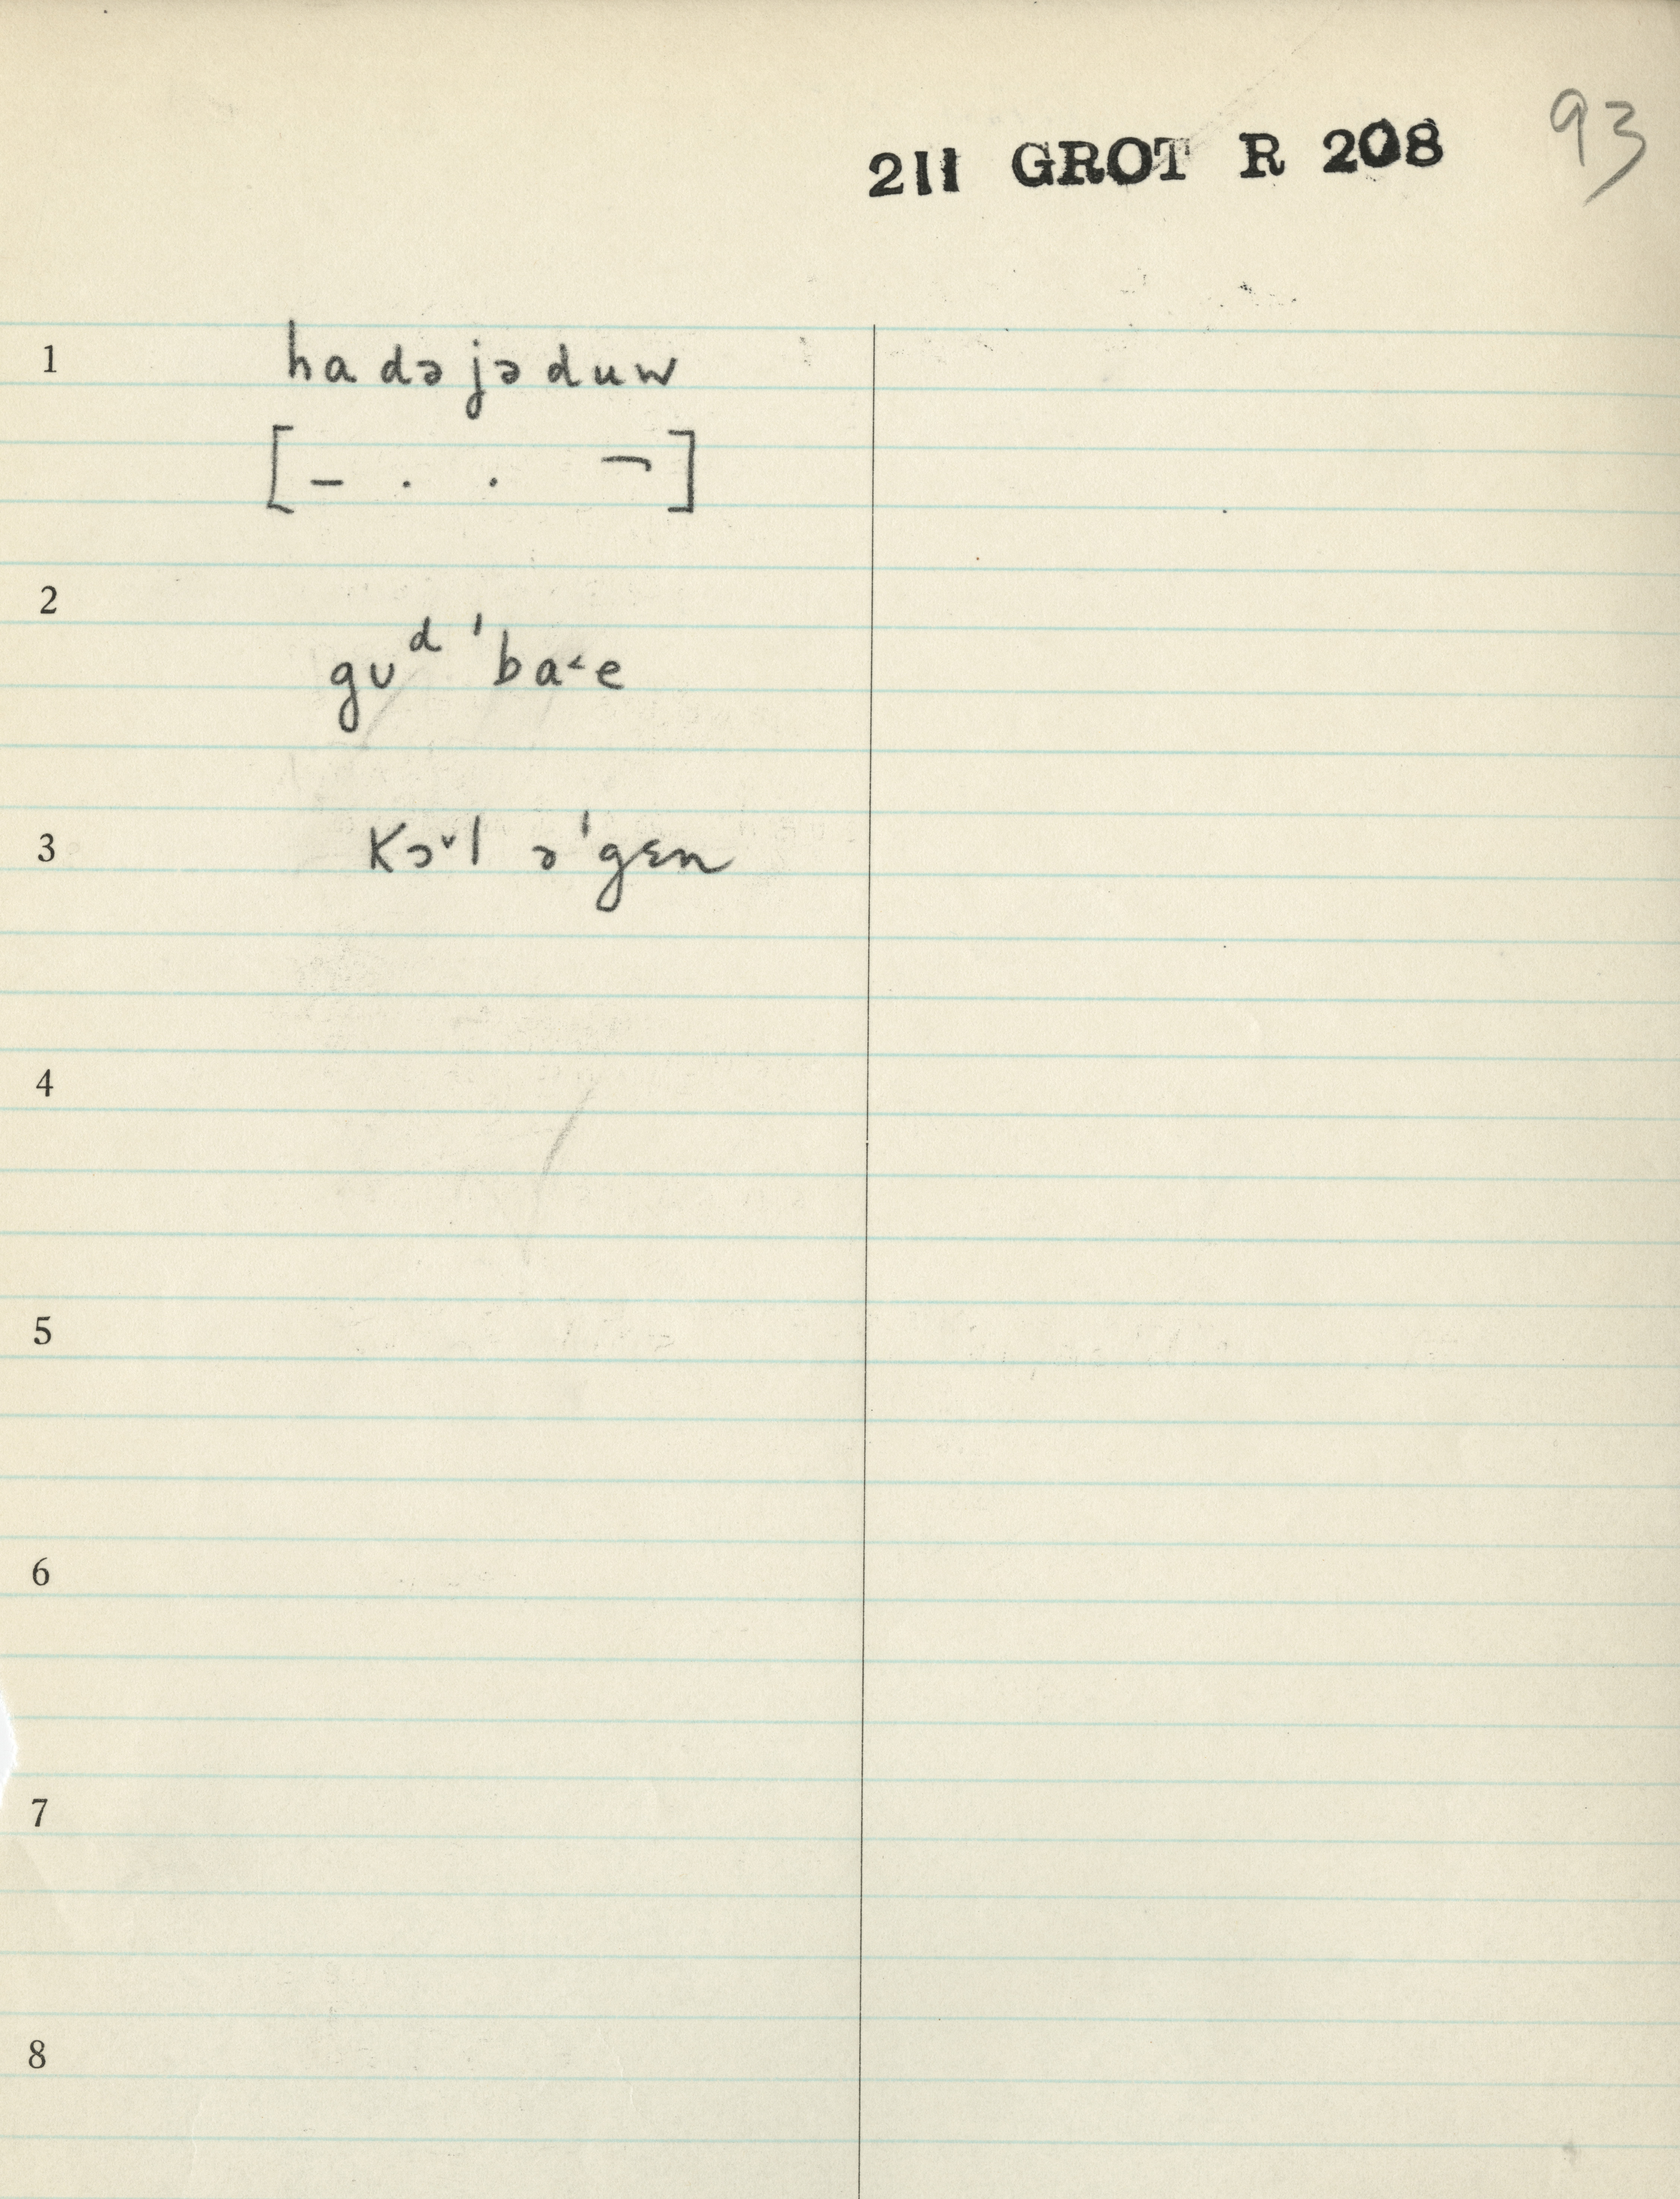 211 GROT R 208 93
1 ha də jə duw
[– . . ¬]
2 guᵈ ˈba˂e
3 Kɔ˅l ə ˈgɛn
4
5
6
7
8